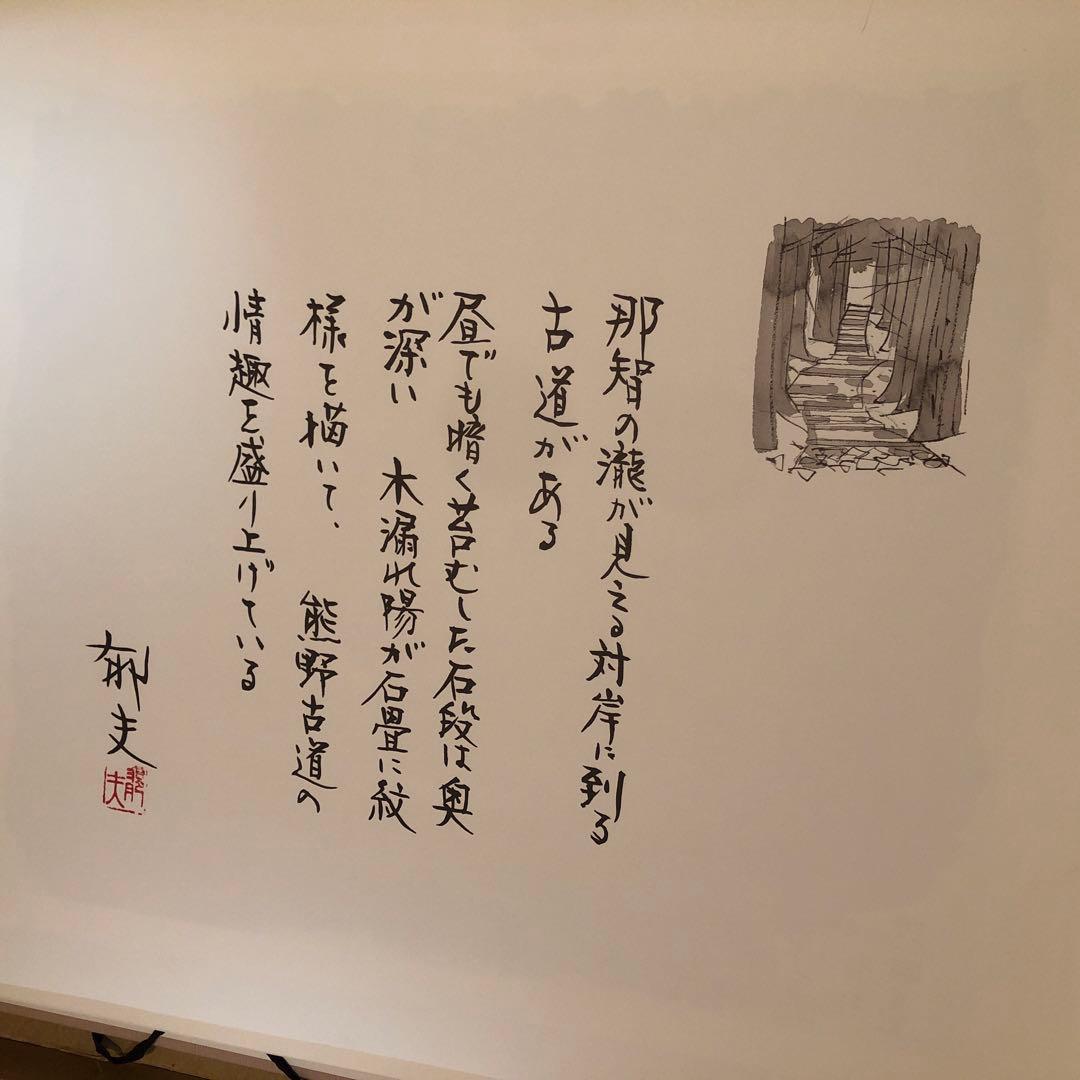 那智の瀧が見える対岸に到る
古道がある
昼でも暗く苔むした石段は奥
が深い 木漏れ陽が石畳に紋
様を描いて、 熊野古道の
情趣を盛り上げている
郁夫
郁夫